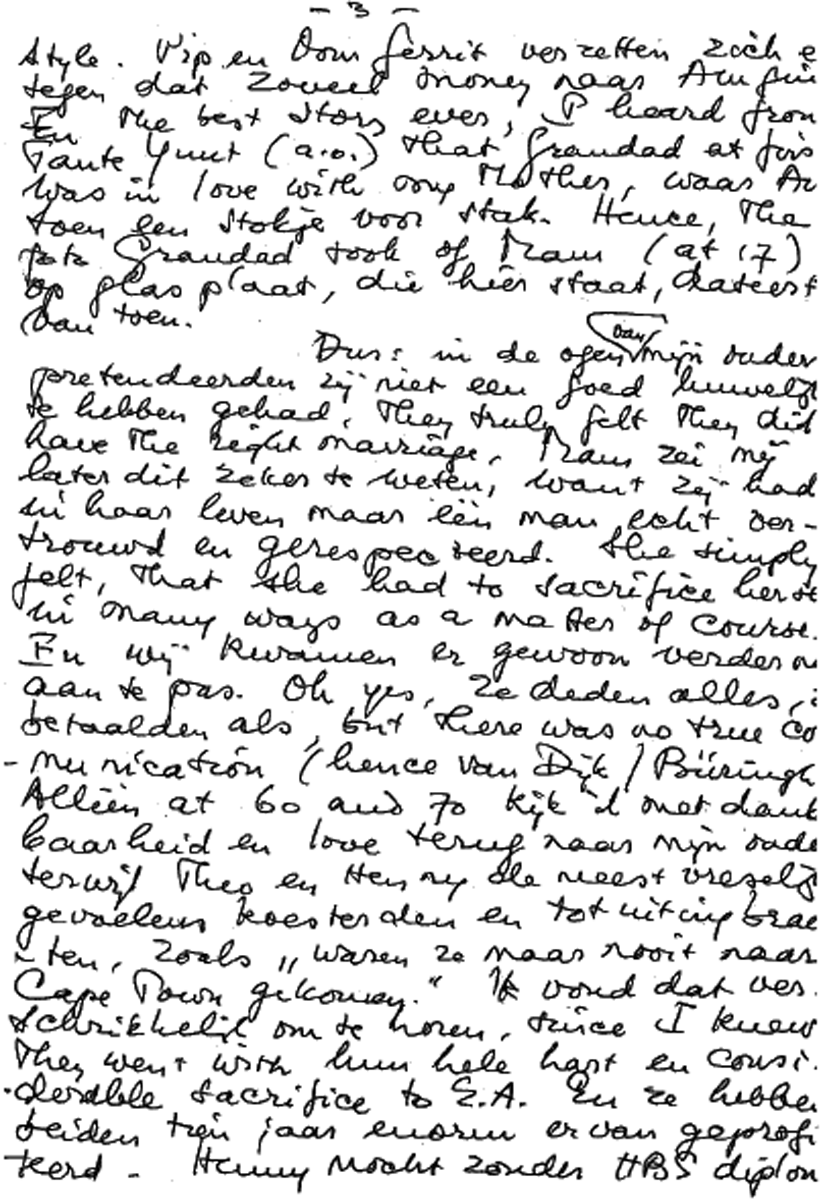 - 3 -
style. Pip en Oom Gerrit verzetten zich e
tegen dat zoveel money naar Am
En the best story ever, I heard from
Tante Yunt (a.o.) that Grandad at firs
was in love with my Mother, waar
toen een stokje voor stak. Hence, the
foto Grandad took of Mam (at 17)
op glas plaat, die hier staat, dateert
van toen.
Dus: in de ogen van mijn ouder
pretendeerden zij niet een goed huwelijk
te hebben gehad. They truly felt they did
have the right marriage. Mam zei mij
later dit zeker te weten, want zij had
in haar leven maar één man echt ver-
trouwd en gerespecteerd. She simply
felt, that she had to sacrifice herse
in many ways as a matter of course.
En wij kwamen er gewoon verder n
aan te pas. Oh yes, ze deden alles,
betaalden als, but there was no true co
- munication (hence van Dijk / Büringh
Alléén at 60 and 70 kijk 'k met dank
baarheid en love terug naar mijn oude
terwijl Theo en Henny de meest vreselij
gevoelens koesterden en tot uiting brac
- ten, zoals „waren ze maar nooit naar
Cape Town gekomen." Ik vond dat ver.
schrikkelijk om te horen, since I knew
they went with hun hele hart en consi.
.derable sacrifice to Z.A. En ze hebben
beiden tien jaar enorm ervan geprofi
teerd - Henny mocht zonder HBS diplom